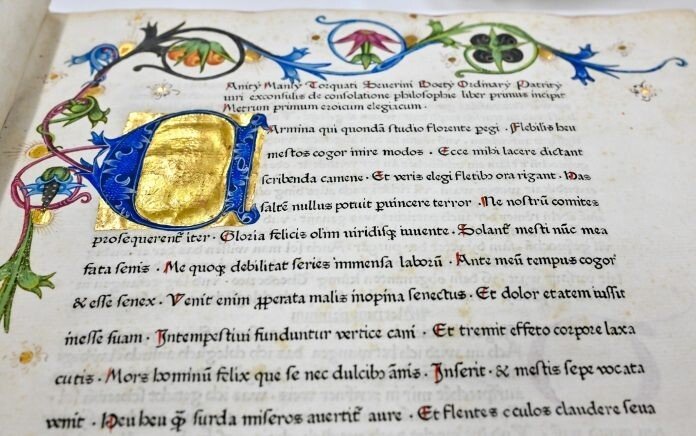 Anitÿ Manlÿ Torquati Seuerini Boetÿ Ordinarÿ Patritÿ
uiri exconsulis de consolatione philosophie liber primus incipit
Metrum primum eroicum elegiacum .
CArmina qui quondā studio florente pegi . Flebilis heu
mestos cogor inire modos . Ecce mihi lacere dictant
scribenda camene . Et veris elegi fletibo ora rigant . Has
saltē nullus potuit ꝑuincere terror . Ne nostrū comites
prosequerent̄ iter . Gloria felicis olim viridisqꝫ iuuente . Solant̄ mesti nūc mea
fata senis . Me quoqꝫ debilitat series immensa laborū . Ante meū tempus cogor
& esse senex . Venit enim ꝓperata malis inopina senectus . Et dolor etatem iussit
inesse suam . Intempestiui funduntur vertice cani . Et tremit effeto corpore laxa
cutis . Mors hominū felix que se nec dulcibo ānis . Inserit . & mestis sepe vocata
venit . Heu heu qꝫ̄ surda miseros auertit̄ aure . Et flentes oculos claudere seua